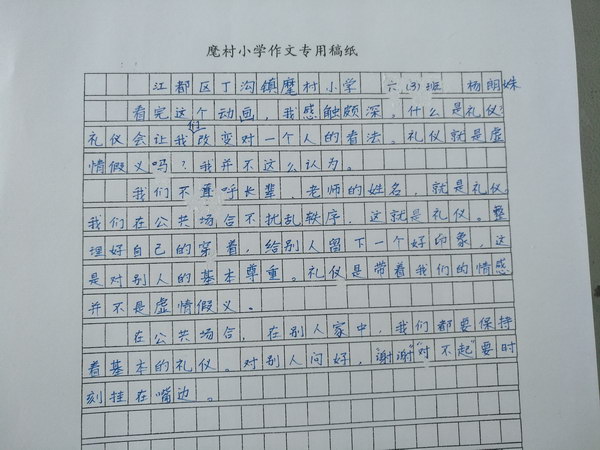 麾村小学作文专用稿纸
江都区丁沟镇麾村小学 六(3)班 杨朗姝
看完这个动画，我感触颇深。什么是礼仪？
礼仪会让我们改变对一个人的看法。礼仪就是虚
情假义吗？我并不这么认为。
我们不直呼长辈、老师的姓名，就是礼仪。
我们在公共场合不扰乱秩序，这就是礼仪。整
理好自己的穿着，给别人留下一个好印象，这
是对别人的基本尊重。礼仪是带着我们的情感
并不是虚情假义。
在公共场合，在别人家中，我们都要保持
着基本的礼仪。对别人问好，“谢谢”“对不起”要时
刻挂在嘴边。